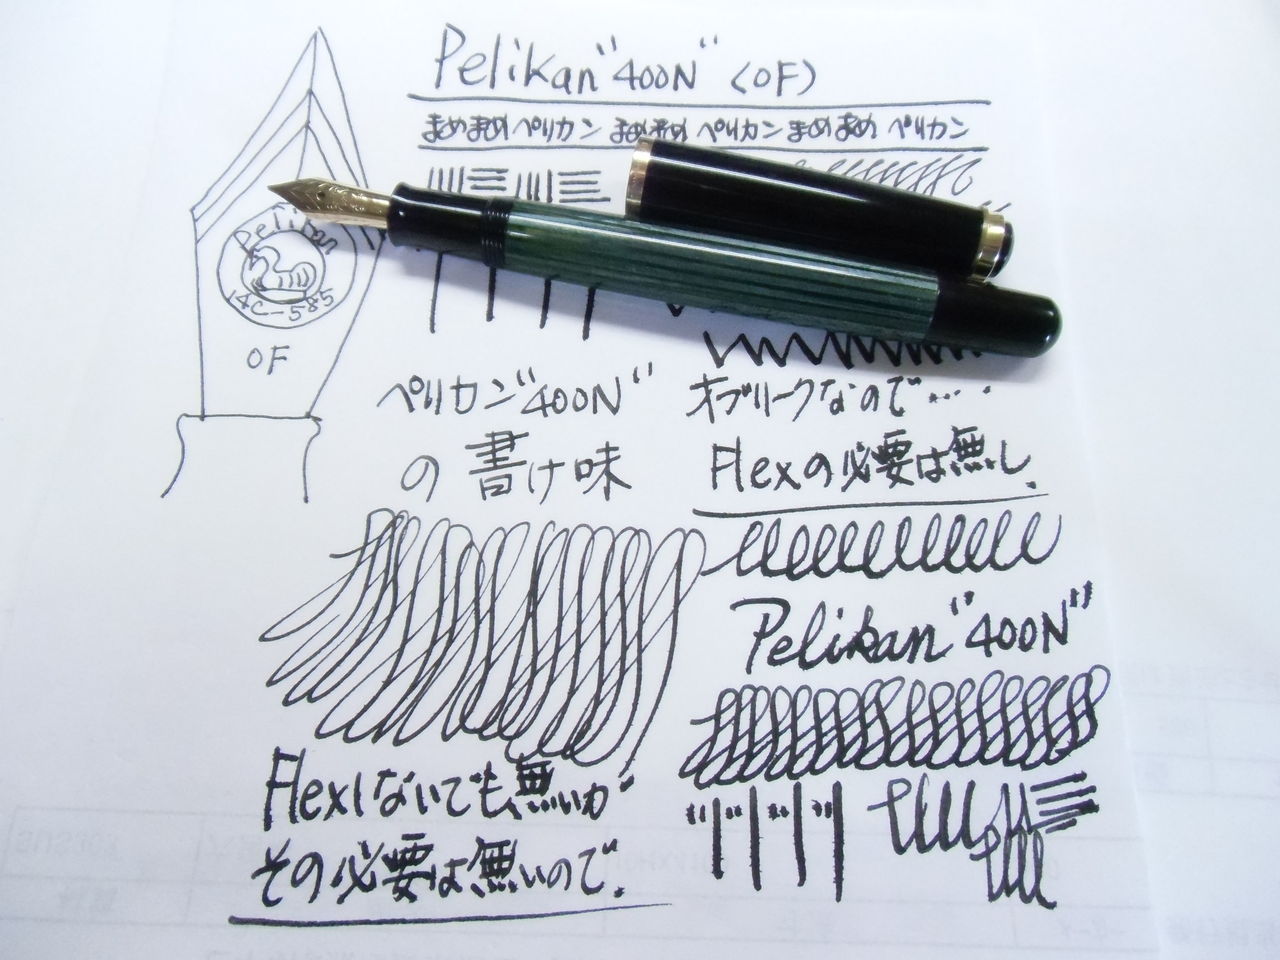 Pelikan "400N" (OF)
まめまめペリカン まめまめ ペリカン まめまめ ペリカン
Pelikan
14C-585
OF
ペリカン"400N"
の書け味
オブリークなので・・・・
Flexの必要は無し.
Pelikan "400N"
Flexしないでも無いが
その必要は無いので.